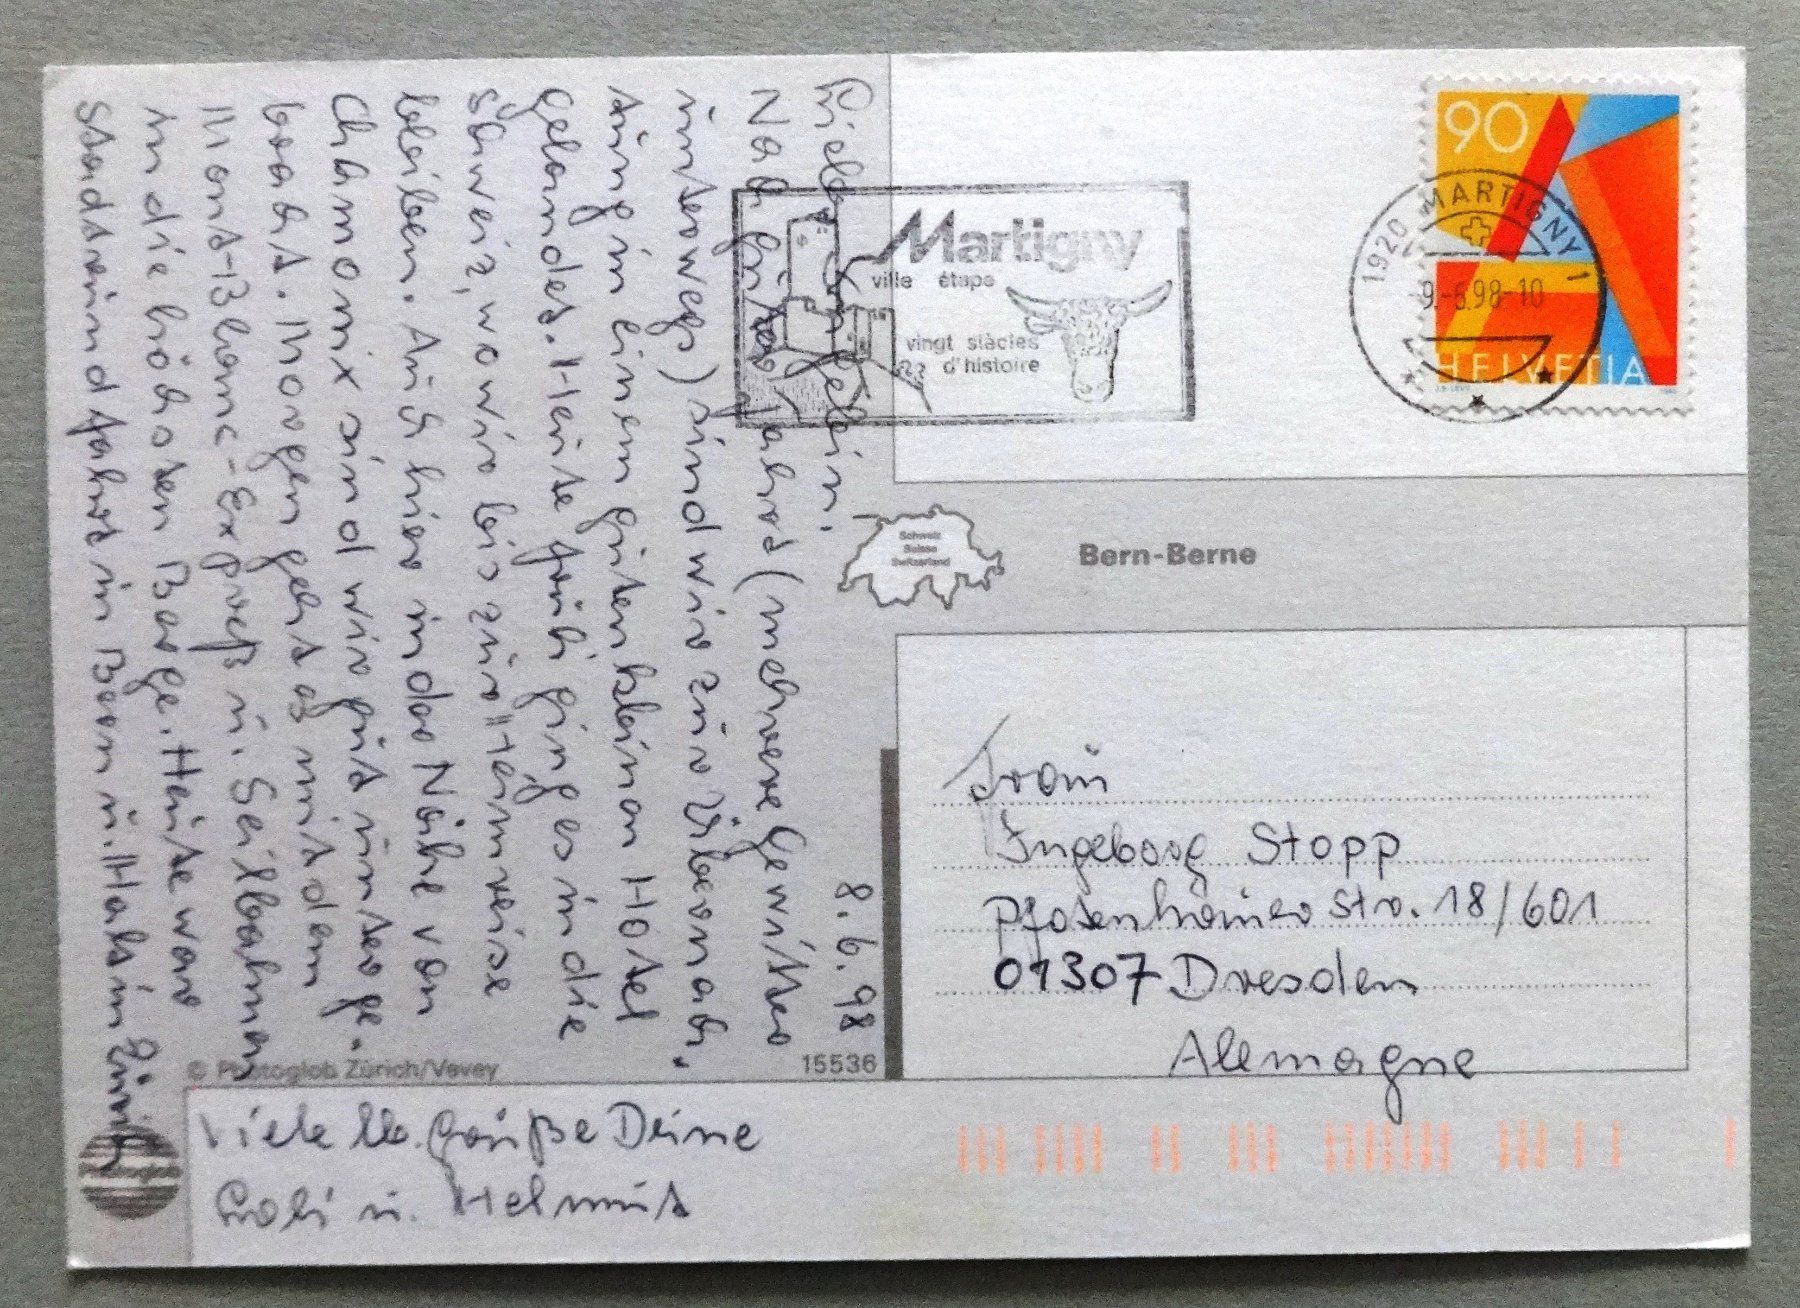 8.6.98
Liebes Ingelein.
Nach guter Fahrt (mehrere Gewitter
unterwegs) sind wir zur Übernach-
tung in einem guten kleinen Hotel
gelandet. Heute früh ging es in die
Schweiz, wo wir bis zur Heimreise
bleiben. Auch hier in der Nähe von
Chamonix sind wir gut unterge-
bracht. Morgen geht es mit dem
Mont-Blanc-Expreß u. Seilbahnen
in die höchsten Berge. Heute war
Stadtrundfahrt in Bern u. Halt in Zürich
Viele lb. Grüße Deine
Gabi u. Helmut
© Photoglob Zürich/Vevey
15536
Photoglob
Martigny
ville étape
vingt siècles
d'histoire
90
HELVETIA
1920 MARTIGNY 1
-9.-6.98-10
Schweiz
Suisse
Switzerland
Bern-Berne
Frau
Ingeborg Stopp
Pfotenhauer Str. 18/601
01307 Dresden
Alemagne